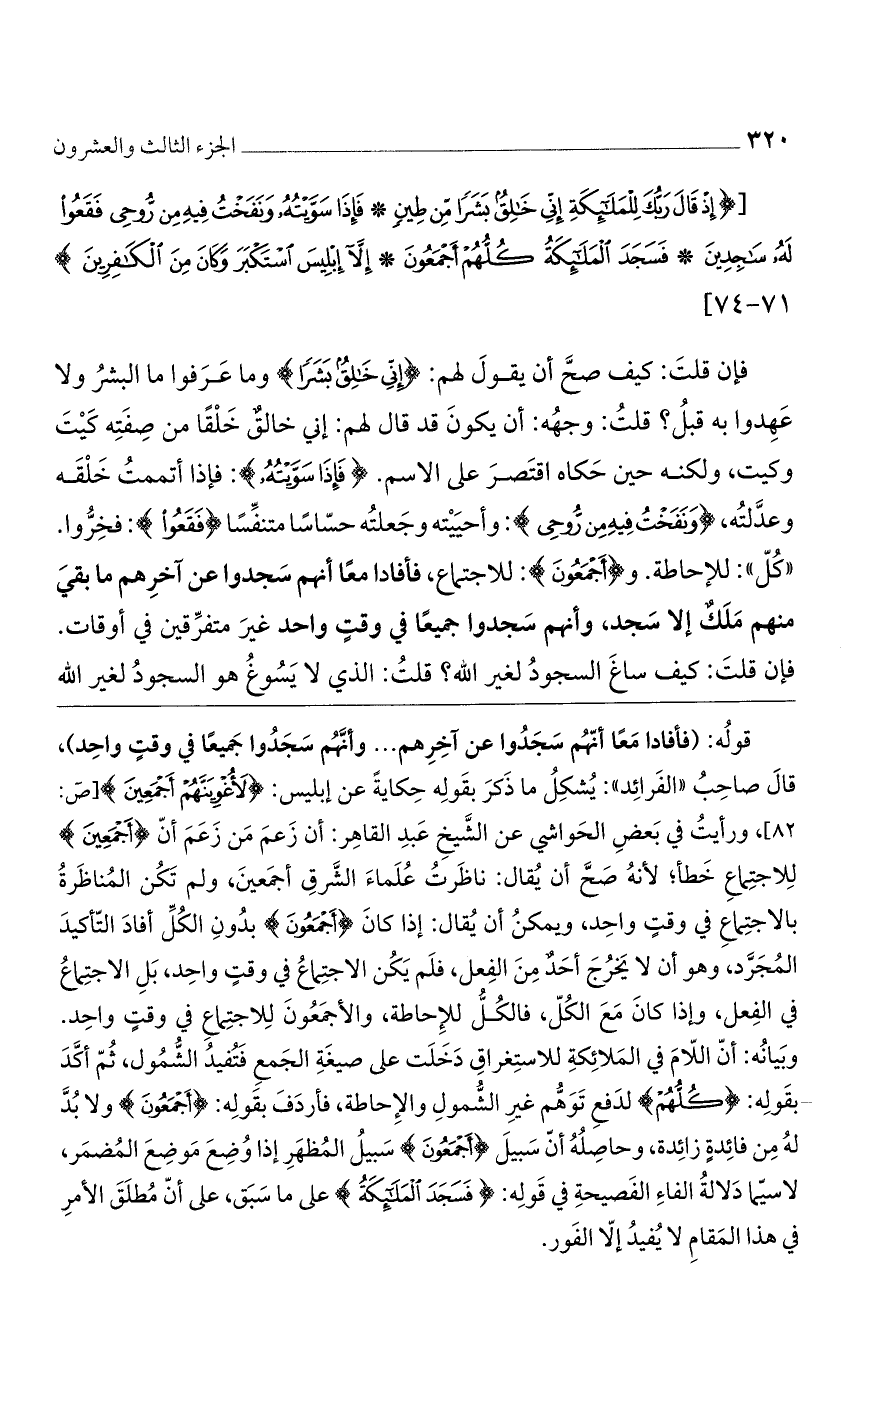 ٣٢٠ ــــــــــــــــــــ الجزء الثالث والعشرون
[﴿إِذْ قَالَ رَبُّكَ لِلْمَلَٰٓئِكَةِ إِنِّى خَٰلِقٌۢ بَشَرًا مِّن طِينٍ * فَإِذَا سَوَّيْتُهُۥ وَنَفَخْتُ فِيهِ مِن رُّوحِى فَقَعُوا۟
لَهُۥ سَٰجِدِينَ * فَسَجَدَ ٱلْمَلَٰٓئِكَةُ كُلُّهُمْ أَجْمَعُونَ * إِلَّآ إِبْلِيسَ ٱسْتَكْبَرَ وَكَانَ مِنَ ٱلْكَٰفِرِينَ﴾
٧١-٧٤]
فإن قلتَ: كيف صحَّ أن يقــولَ لهم: ﴿إِنِّى خَٰلِقٌۢ بَشَرًا﴾ وما عَـرَفوا ما البشرُ ولا
عَهِدوا به قبلُ؟ قلتُ: وجهُه: أن يكونَ قد قال لهم: إني خالقٌ خَلْقًا من صِفَتِه كَيْتَ
وكيت، ولكنـه حين حَكاه اقتَصـرَ على الاسم. ﴿فَإِذَا سَوَّيْتُهُۥ﴾: فإذا أتممتُ خَلْقَـه
وعدَّلتُه، ﴿وَنَفَخْتُ فِيهِ مِن رُّوحِى﴾: وأحيَيْته وجَعلتُه حسّاسًا متنفِّسًا ﴿فَقَعُوا۟﴾: فخِرُّوا.
«كُلّ»: للإحاطة. و﴿أَجْمَعُونَ﴾: للاجتماع، فأفادا معًا أنهم سَجدوا عن آخرِهم ما بقيَ
منهم مَلَكٌ إلا سَجد، وأنهم سَجدوا جميعًا في وقتٍ واحد غيرَ متفرِّقين في أوقات.
فإن قلتَ: كيف ساغَ السجودُ لغير الله؟ قلتُ: الذي لا يَسُوغُ هو السجودُ لغير الله
قولُه: (فأفادا مَعًا أنّهُم سَجَدُوا عن آخِرِهم... وأنَّهُم سَجَدُوا جَميعًا في وقتٍ واحِد)،
قالَ صاحِبُ «الفَرائِد»: يُشكِلُ ما ذَكَرَ بقَولِه حِكايةً عن إبليس: ﴿لَأُغْوِيَنَّهُمْ أَجْمَعِينَ﴾ [صّ:
٨٢]، ورأيتُ في بَعضِ الحَواشي عن الشَّيخِ عَبدِ القاهِر: أن زَعمَ مَن زَعَمَ أنّ ﴿أَجْمَعِينَ﴾
لِلاجتِماعِ خَطأ؛ لأنهُ صَحَّ أن يُقال: ناظَرتُ عُلَماءَ الشَّرقِ أجمَعينَ، ولم تَكُن المُناظَرةُ
بالاجتِماعِ في وقتٍ واحِد، ويمكنُ أن يُقال: إذا كانَ ﴿أَجْمَعُونَ﴾ بدُونِ الكُلِّ أفادَ التّأكيدَ
المُجَرَّد، وهو أن لا يَخرُجَ أحَدٌ مِنَ الفِعل، فلَم يَكُن الاجتِماعُ في وقتٍ واحِد، بَلِ الاجتِماعُ
في الفِعل، وإذا كانَ مَعَ الكُلّ، فالكُــلُّ للإحاطة، والأجمَعُونَ لِلاجتِماعِ في وقتٍ واحِد.
وبَيانُه: أنّ اللّامَ في المَلائكةِ للاستِغراقِ دَخَلَت على صيغَةِ الجَمعِ فتُفيدُ الشُّمول، ثُمّ أكَّدَ
بقَولِه: ﴿كُلُّهُمْ﴾ لدَفعِ تَوَهُّم غيرِ الشُّمولِ والإحاطة، فأردَفَ بقَولِه: ﴿أَجْمَعُونَ﴾ ولا بُدَّ
لهُ مِن فائِدةٍ زائِدة، وحاصِلُهُ أنّ سَبيلَ ﴿أَجْمَعُونَ﴾ سَبيلُ المُظهَرِ إذا وُضِعَ مَوضِعَ المُضمَر،
لاسيّما دَلالةُ الفاءِ الفَصيحةِ في قَولِه: ﴿فَسَجَدَ ٱلْمَلَٰٓئِكَةُ﴾ على ما سَبَق، على أنّ مُطلَقَ الأمرِ
في هذا المَقامِ لا يُفيدُ إلّا الفَور.